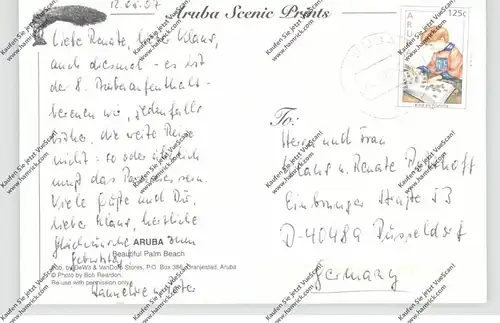 12.04.07
Aruba Scenic Prints
Liebe Renate, lieber Klaus,
auch diesmal - es ist
der 8. Arubaaufenthalt -
bereuen wir, jedenfalls
bisher, die weite Reise
nicht: so oder ähnlich
muß das Paradies sein.
Viele Grüße und Dir,
lieber Klaus, herzliche
Glückwünsche zum
Geburtstag
Hannelore u. Peter
ARUBA
Beautiful Palm Beach
by DeWit & VanDorp Stores, P.O. Box 386, Oranjestad, Aruba
© Photo by Bob Reardon.
Re-use with permission only.
ARUBA
125c
To:
Herrn und Frau
Klaus u. Renate
Einbrunger Straße 53
D-40489 Düsseldorf
Germany
Kaufen Sie jetzt VueScan!
www.hamrick.com